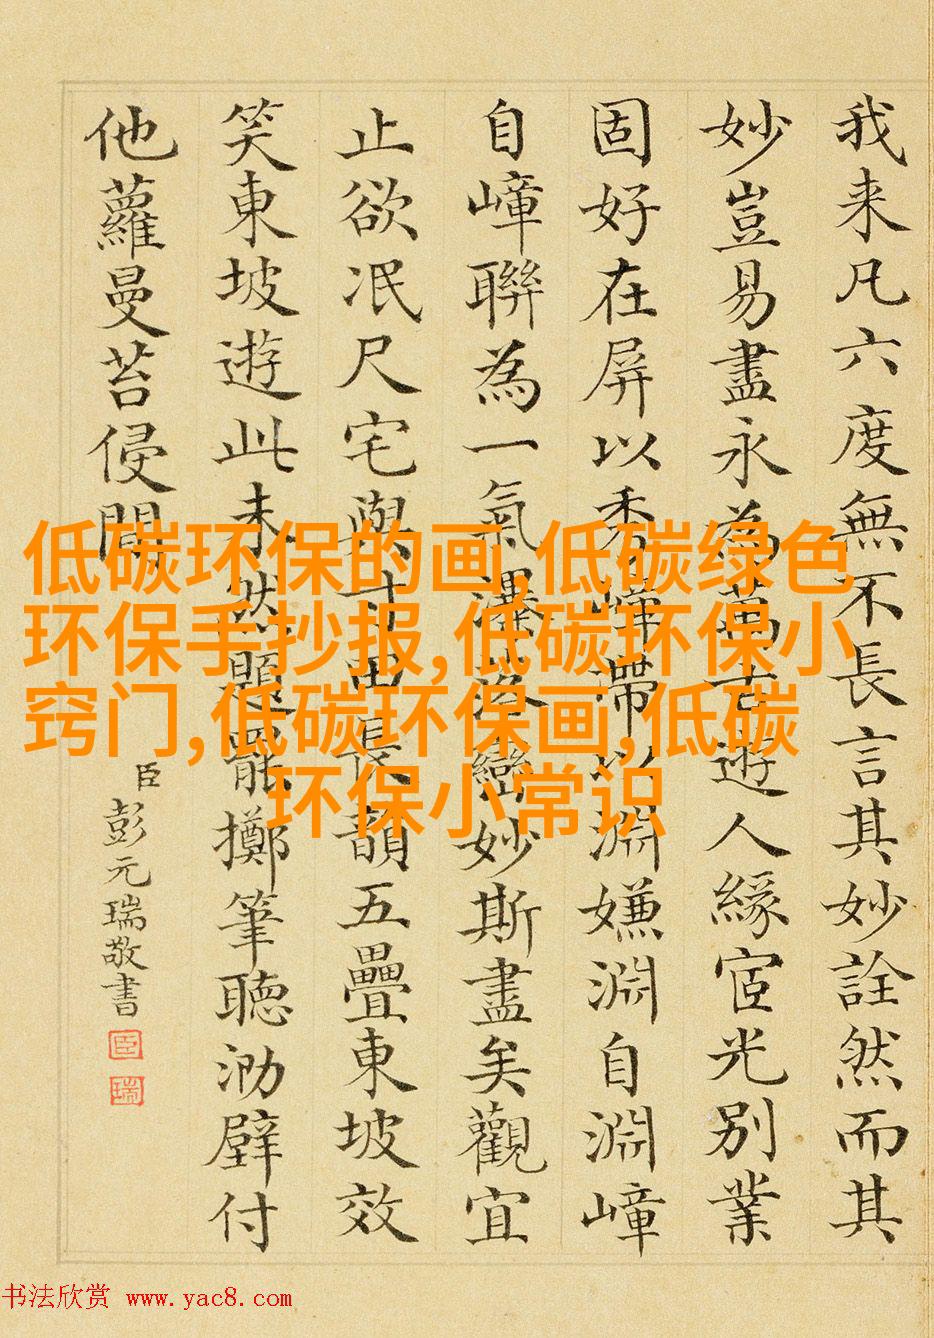 我来凡六度無不長言其妙詮然而其
妙豈易盡永為萬古遊人緣宦光別業
固好在屏以秀嶂滯以淵嫌淵自淵嶂
自嶂聯為一氣瀑落巒妙斯盡矣觀宜
止欲泯尺宅與寸田長韻五疊東坡效
笑東坡遊此未然題罷擲筆聽泐壁付
他蘿曼苔侵間
臣彭元瑞敬書
臣
瑞
低碳环保的画,低碳绿色
环保手抄报,低碳环保小
窍门,低碳环保画,低碳
环保小常识
书法欣赏 www.yac8.com